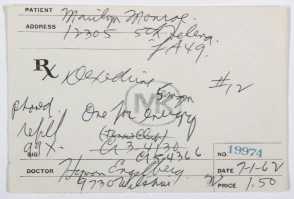 PATIENT Marilyn Monroe
ADDRESS 12305 5th Helena
LA 49.
Rx Dexedrine
5 mgm #12
phoned. One for energy
refill
99x.
CR 3-4130
CR 5 4366
SIG
NO. 19974
DOCTOR Hyman Engelberg DATE 7-1-62
9730 Wilshire PRICE 1.50